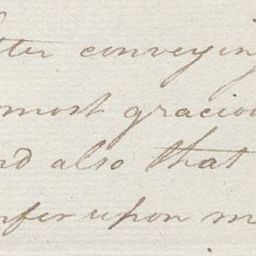 tter conveying
most graciou
nd also that
nfer upon m